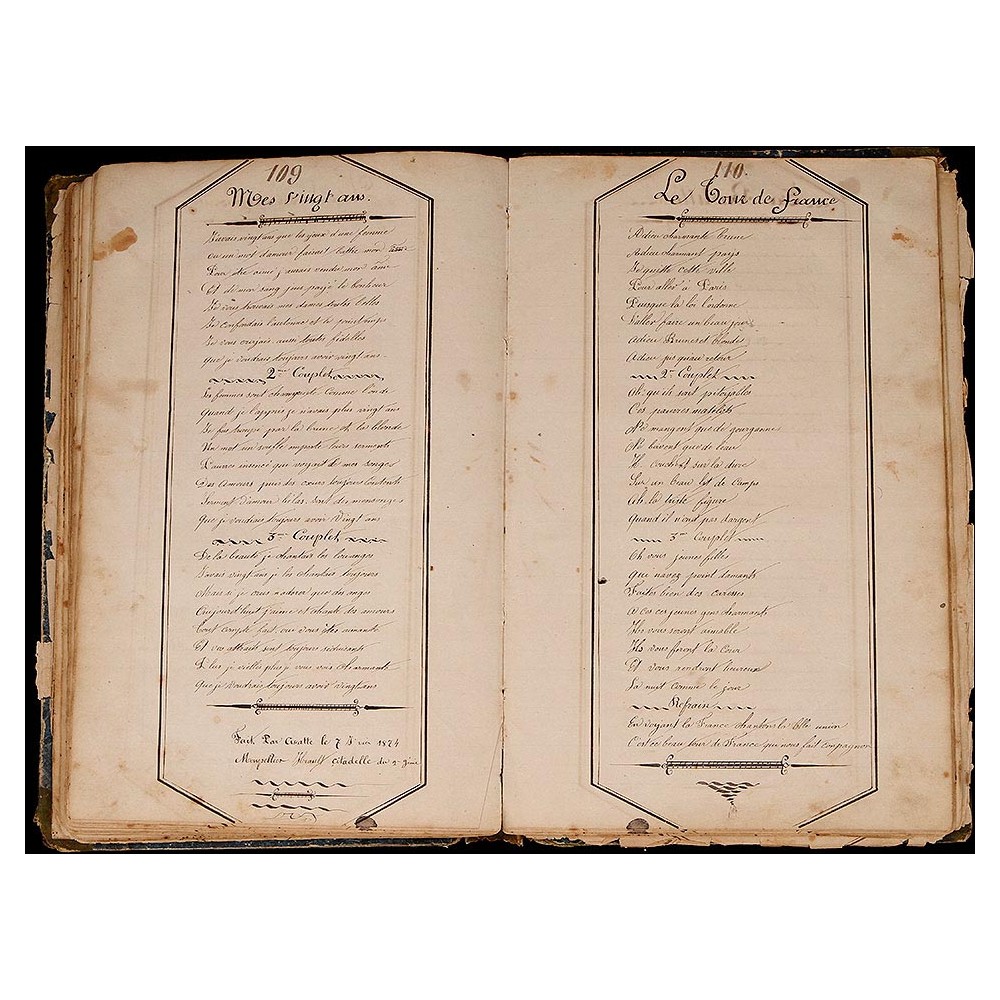 109
Mes vingt ans.
J'avais vingt ans que les yeux d'une femme
Ou un mot d'amour faisait battre mon
Pour être aimé j'aurais vendu mon âme
Et de mon sang puis payé le bonheur
Je vous trouvais mes dames toutes belles
Je confondais l'automne et le printemps
Je vous croyais aussi toutes fidelles
Que je voudrais toujours avoir vingt ans
2me Couplet
Les femmes sont changeante comme l'onde
Quand je l'appris je n'avais plus vingt ans
Je fus trompé par la brune et la blonde
Un mot un souffle emporte leurs serments
Pauvre insencé qui voyait de mes songes
Des amours purs des cœurs toujours
Serment d'amour hélas sont des mensonges
Que je voudrais toujours avoir vingt ans
3me Couplet
De la beauté je chantais les louanges
J'avais vingt ans je les chantais toujours
Mais si je crus n'adorer que des anges
Aujourd'huit j'aime et chante les amours
Tout compte fait oui vous êtes aimante
Et vos attraits sont toujours séduisants
Plus je vieillis plus je vous vois charmante
Que je voudrais toujours avoir vingt ans
Fait Par le 7
Montpellier Hérault citadelle du 2e génie
110.
Le Tour de France
Adieu charmante brune
Adieu charmant pays
Je quitte cette ville
Pour aller à Paris
Puisque la loi l'ordonne
D'aller faire un beau jour
Adieu Brunes et blondes
Adieu jusqu'au retour
2me Couplet
Ah qu'ils sont pitoyables
Ces pauvres matelots
Ne mangent que de gourganne
Ne boivent que de l'eau
Ils couchent sur la dure
Sur un beau lit de camps
Ah la triste figure
Quand il n'ont pas d'argent
3me Couplet
Oh vous jeunes filles
Qui n'avez point d'amants
Faites bien des caresses
A ces jeunes gens charmants
Ils vous seront aimable
Ils vous feront la cour
Et vous rendront heureux
La nuit comme le jour
Refrain
En voyant la France chantons la belle union
C'est ce beau tour de France qui nous fait compagnon